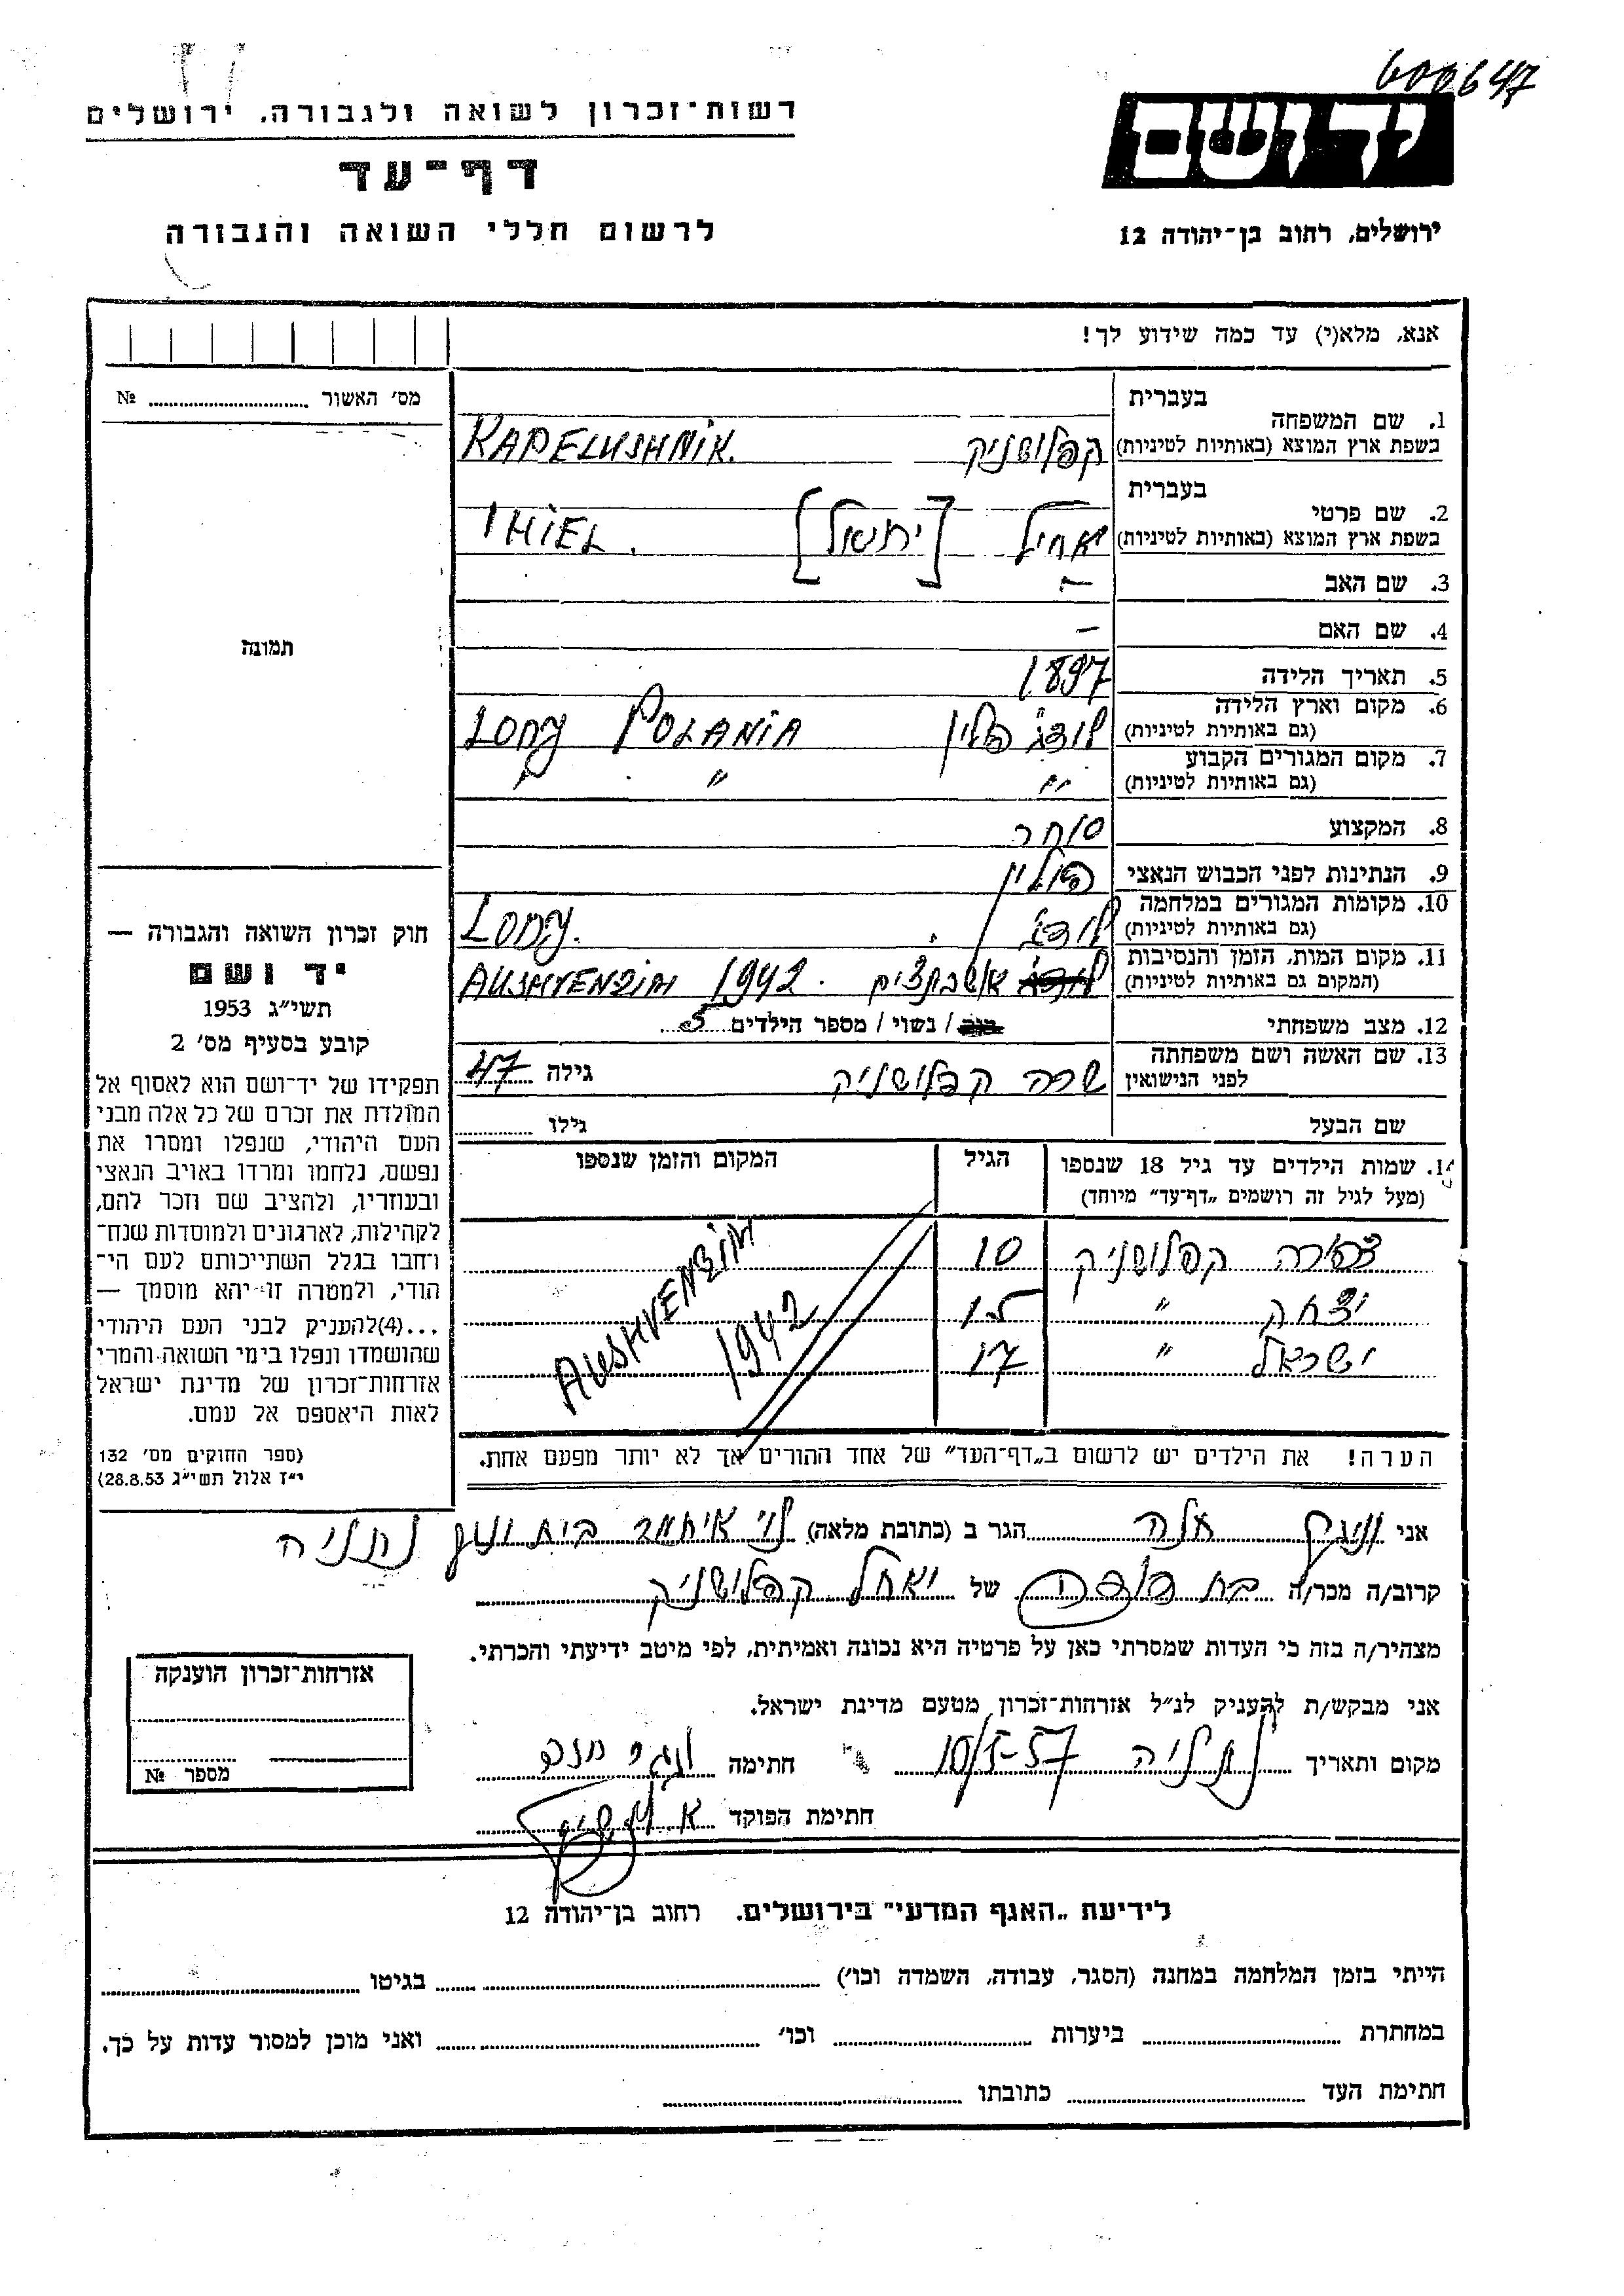 600647
רשות־זכרון לשואה ולגבורה, ירושלים
יד ושם
דף־עד
לרשום חללי השואה והגבורה
ירושלים, רחוב בן־יהודה 12
אנא, מלא(י) עד כמה שידוע לך!
מס׳ האשור № 
בעברית
1. שם המשפחה
בשפת ארץ המוצא (באותיות לטיניות) קפלושניק KAPELUSHNIK.
בעברית
2. שם פרטי
בשפת ארץ המוצא (באותיות לטיניות) יאחיל [יחיאל] IHIEL.
3. שם האב –
4. שם האם –
5. תאריך הלידה 1897
6. מקום וארץ הלידה
(גם באותיות לטיניות) לודג׳ פולין LODZ POLANIA
7. מקום המגורים הקבוע
(גם באותיות לטיניות) " " "
8. המקצוע סוחר
9. הנתינות לפני הכבוש הנאצי פולין
10. מקומות המגורים במלחמה
(גם באותיות לטיניות) לודג׳ LODZ.
11. מקום המות, הזמן והנסיבות
(המקום גם באותיות לטיניות) אושבנצים AUSHVENZIM 1942.
12. מצב משפחתי / נשוי / מספר הילדים 5
13. שם האשה ושם משפחתה
לפני הנישואין שרה קפלושניק גילה 47
שם הבעל גילו
14. שמות הילדים עד גיל 18 שנספו הגיל המקום והזמן שנספו
(מעל לגיל זה רושמים „דף־עד״ מיוחד)
צפורה קפלושניק 10 AUSHVENZIM
יצחק " 15 1942
ישראל " 17
הערה! את הילדים יש לרשום ב„דף־העד״ של אחד ההורים אך לא יותר מפעם אחת.
תמונה
חוק זכרון השואה והגבורה —
יד ושם
תשי״ג 1953
קובע בסעיף מס׳ 2
תפקידו של יד־ושם הוא לאסוף אל
המולדת את זכרם של כל אלה מבני
העם היהודי, שנפלו ומסרו את
נפשם, נלחמו ומרדו באויב הנאצי
ובעוזריו, ולהציב שם וזכר להם,
לקהילות, לארגונים ולמוסדות שנח־
רחבו בגלל השתייכותם לעם הי־
הודי, ולמטרה זו יהא מוסמך —
...(4) להעניק לבני העם היהודי
שהושמדו ונפלו בימי השואה והמרי
אזרחות־זכרון של מדינת ישראל
לאות היאספם אל עמם.
(ספר החוקים מס׳ 132
י״ז אלול תשי״ג 28.8.53)
אני הגר ב (כתובת מלאה) נתניה
קרוב/ה מכר/ה בת דודה של יאחל קפלושניק
מצהיר/ה בזה כי העדות שמסרתי כאן על פרטיה היא נכונה ואמיתית, לפי מיטב ידיעתי והכרתי.
אני מבקש/ת להעניק לנ״ל אזרחות־זכרון מטעם מדינת ישראל.
מקום ותאריך נתניה 10/5-57 חתימה
חתימת הפוקד
אזרחות־זכרון הוענקה
מספר №
לידיעת „האגף המדעי״ בירושלים. רחוב בן־יהודה 12
הייתי בזמן המלחמה במחנה (הסגר, עבודה, השמדה וכו׳) בגיטו
במחתרת ביערות וכו׳ ואני מוכן למסור עדות על כך.
חתימת העד כתובתו